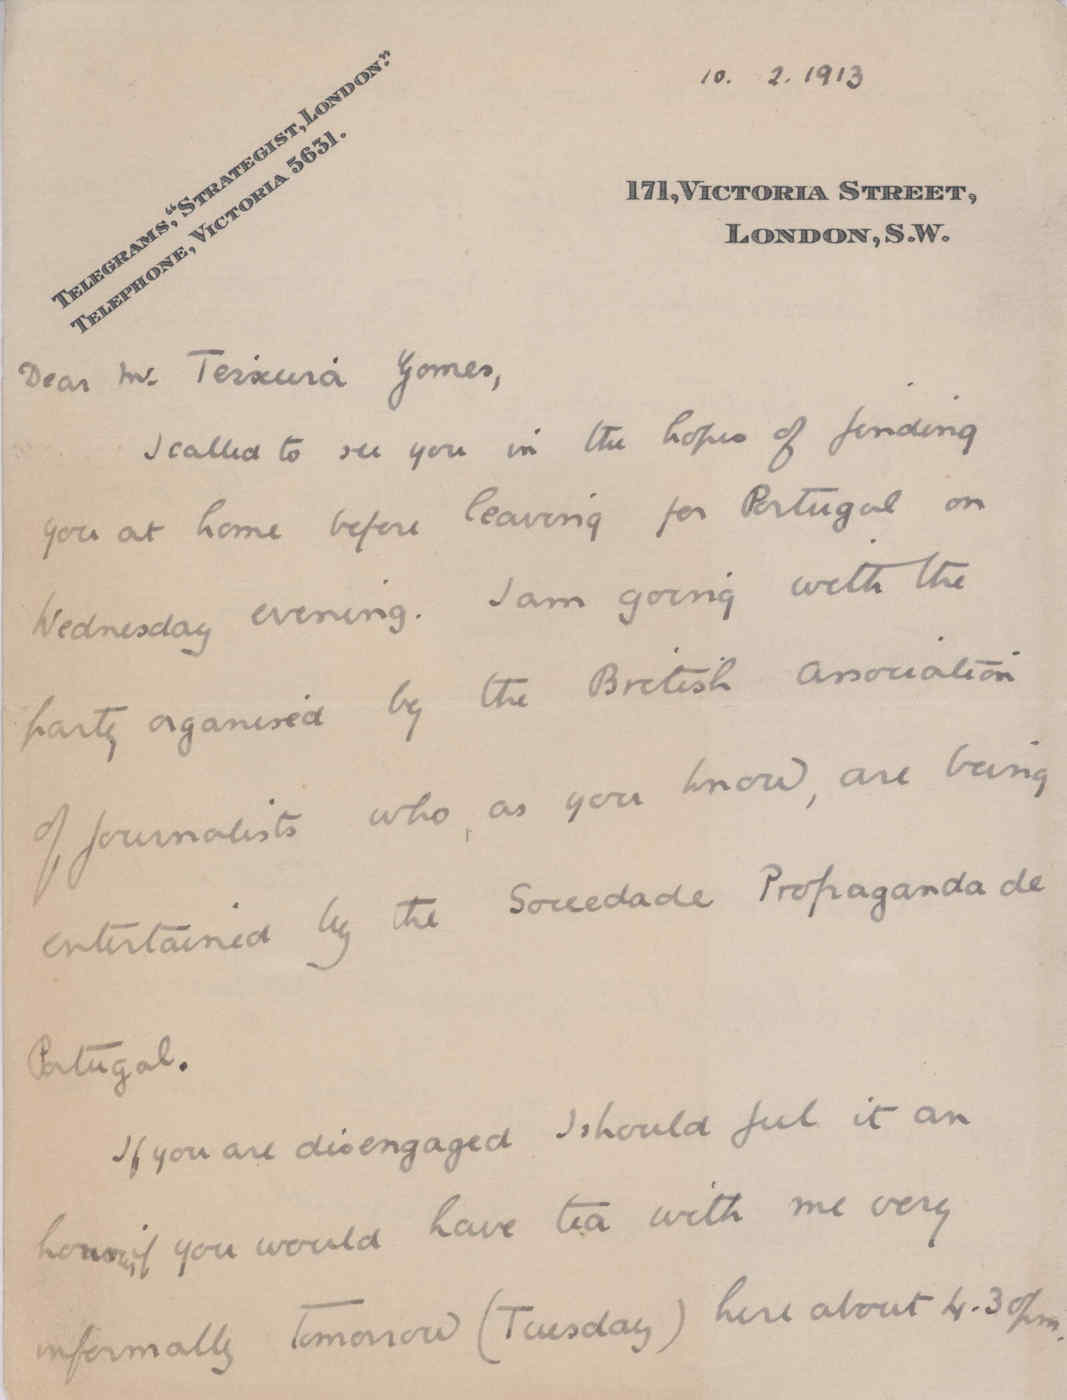 10. 2. 1913
Telegrams, "Strategist, London."
Telephone, Victoria 5631.
171, Victoria Street,
London, S.W.
Dear Mr. Teixeira Gomes,
I called to see you in the hopes of finding
you at home before leaving for Portugal on
Wednesday evening. I am going with the
party organised by the British Association
of Journalists who, as you know, are being
entertained by the Sociedade Propaganda de
Portugal.
If you are disengaged I should feel it an
honour if you would have tea with me very
informally tomorrow (Tuesday) here about 4.30 pm.